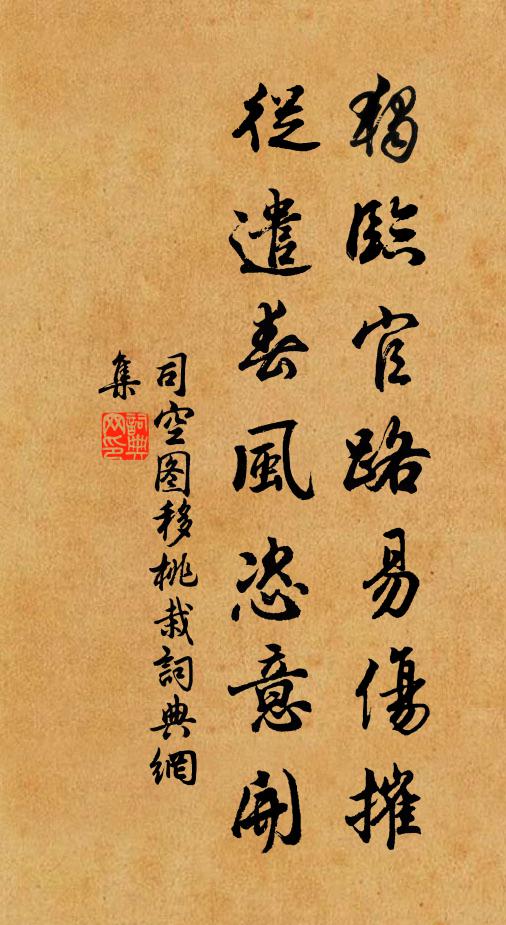 獨臨官路易傷摧
從遣春風恣意開
司空图移桃栽詞典網
集
詞典网印